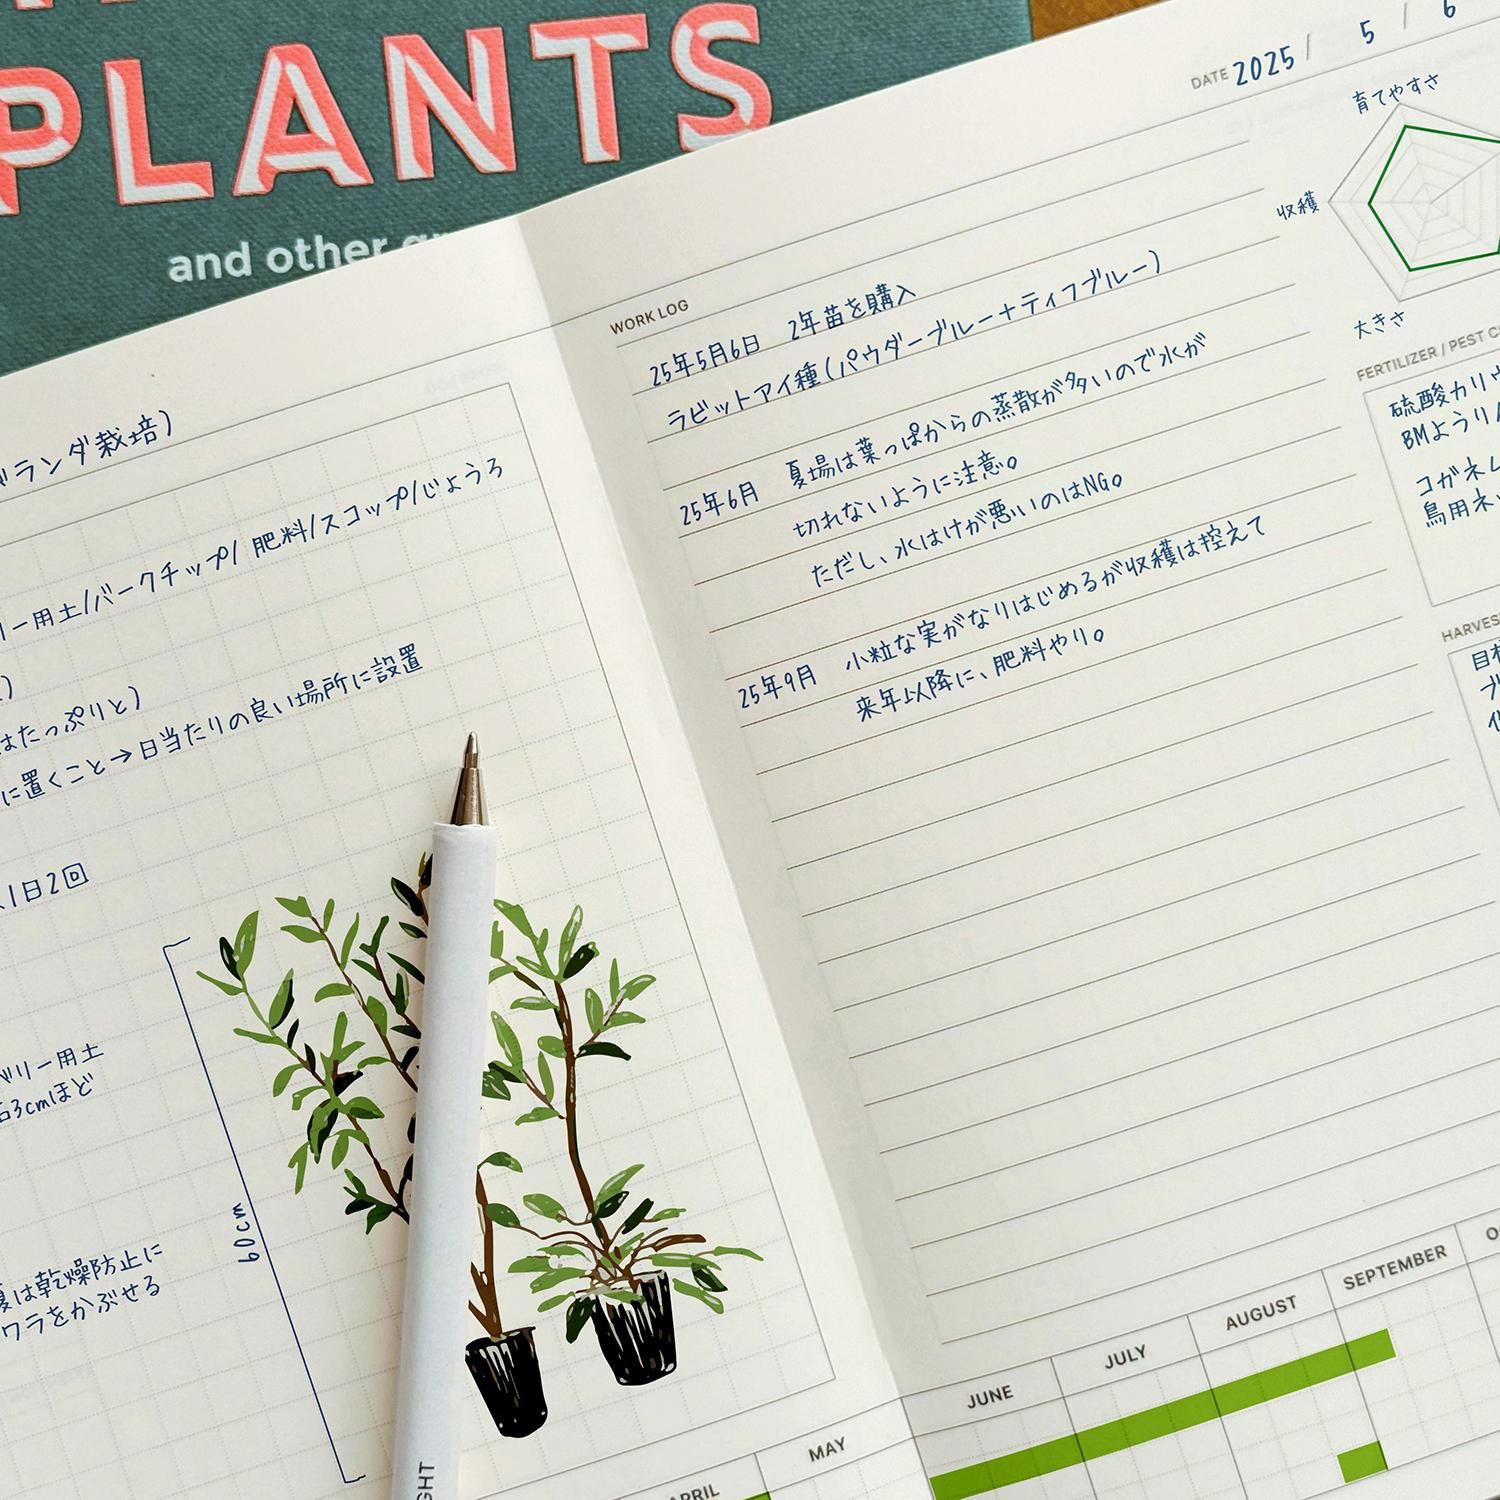 PLANTS
and other
ランダ栽培)
リー用土/バークチップ/肥料/スコップ/じょうろ
はたっぷりと)
に置くこと→日当たりの良い場所に設置
1日2回
リー用土
3cmほど
60cm
は乾燥防止に
ワラをかぶせる
GHT
APRIL
MAY
DATE 2025 / 5 / 6
育てやすさ
収穫
大きさ
WORK LOG
25年5月6日 2年苗を購入
ラビットアイ種(パウダーブルー+ティフブルー)
25年6月 夏場は葉っぱからの蒸散が多いので水が
切れないように注意。
ただし、水はけが悪いのはNG。
25年9月 小粒な実がなりはじめるが収穫は控えて
来年以降に、肥料やり。
FERTILIZER / PEST
硫酸カリ
BMようりん
コガネム
鳥用ネッ
HARVES
JUNE
JULY
AUGUST
SEPTEMBER